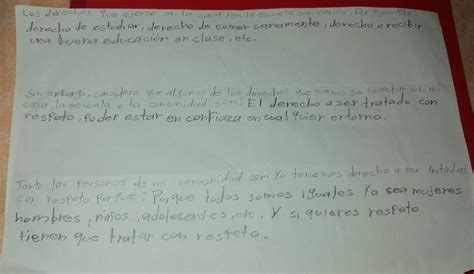 Los derechos que ejerzo en la casa y en la escuela son varios. Por ejemplo:
derecho de estudiar, derecho de comer sanamente, derecho a recibir
una buena educación en clase, etc.
Sin embargo, considero que algunos de los derechos que menos se respetan en mi
casa, la escuela o la comunidad son: El derecho a ser tratado con
respeto, Poder estar en confiaza en cualquier entorno.
Tanto las personas de mi comunidad como Yo tenemos derecho a ser tratadas
con respeto porque: Porque todos somos iguales Ya sea mujeres
hombres, niños, adolecentes, etc. Y si quieres respeto
tienen que tratar con respeto.